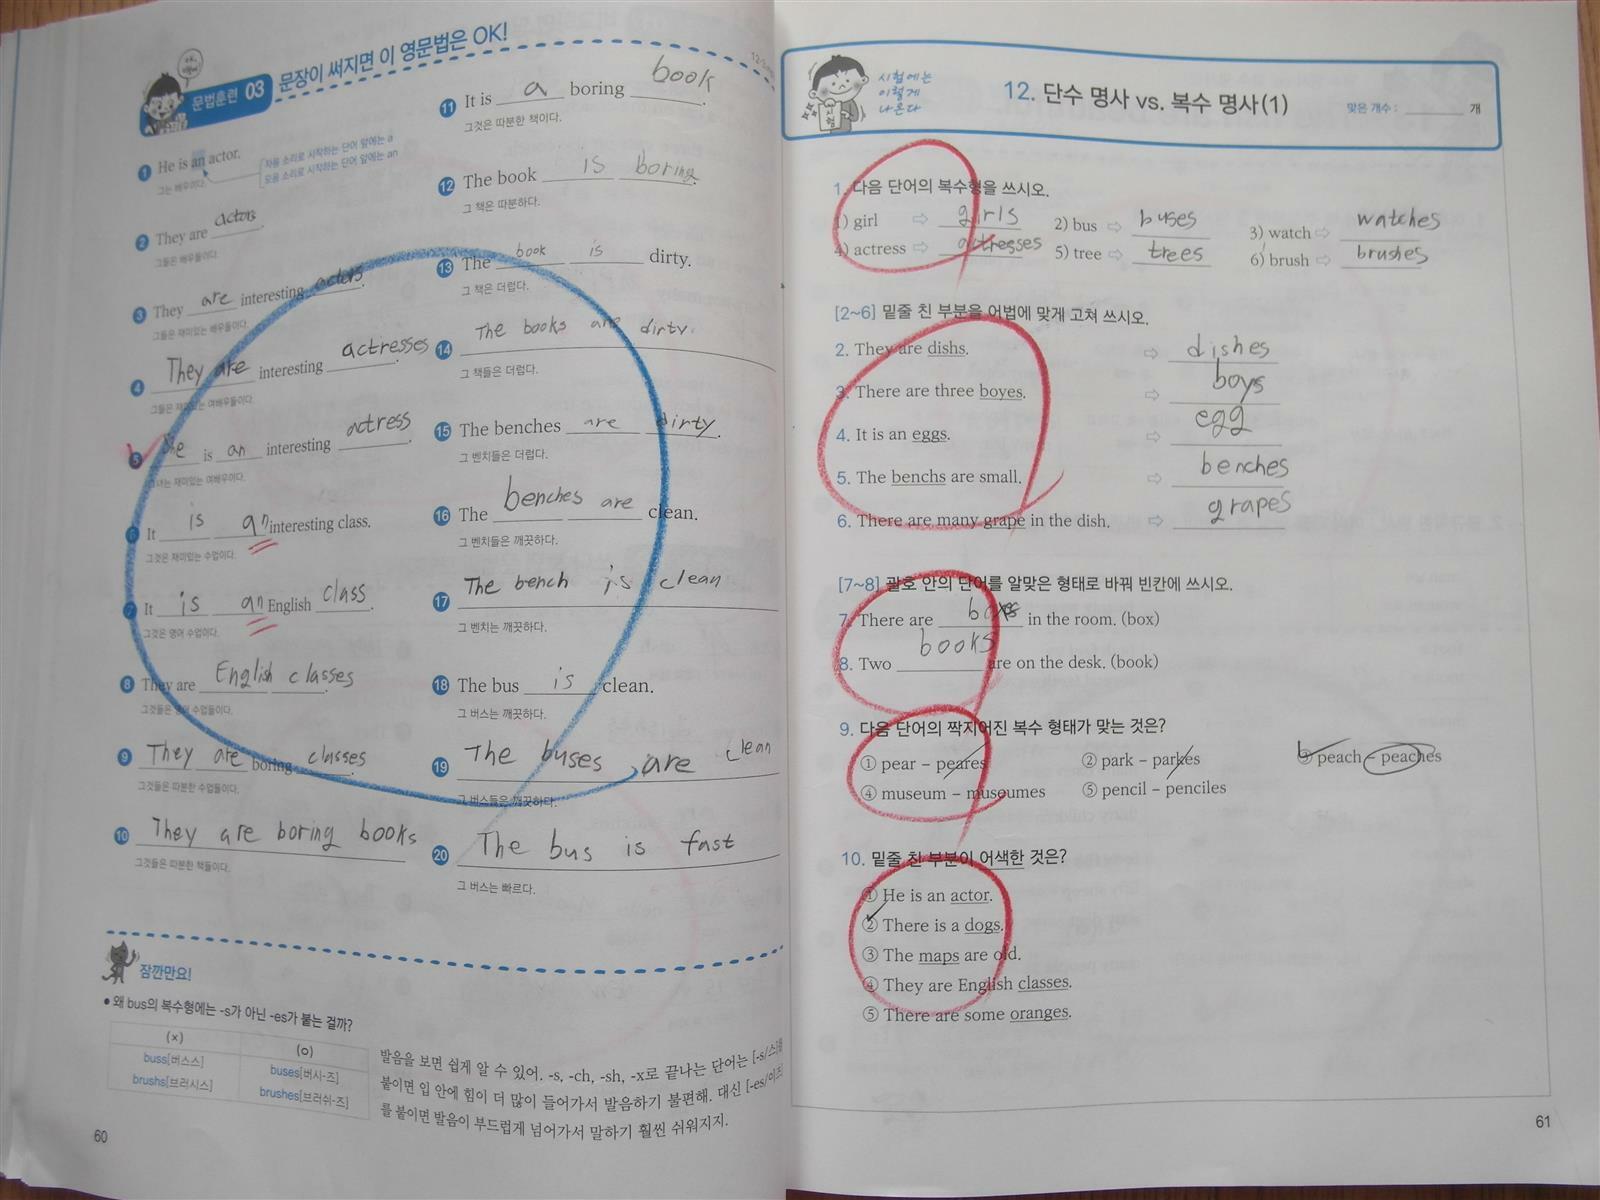 문법훈련 03 문장이 써지면 이 영문법은 OK!
1 He is an actor.
자음 소리로 시작하는 단어 앞에는 a
모음 소리로 시작하는 단어 앞에는 an
그는 배우이다.
2 They are actors.
그들은 배우들이다.
3 They are interesting actors.
그들은 재미있는 배우들이다.
4 They are interesting actresses.
그들은 재미있는 여배우들이다.
5 She is an interesting actress.
그녀는 재미있는 여배우이다.
6 It is an interesting class.
그것은 재미있는 수업이다.
7 It is an English class.
그것은 영어 수업이다.
8 They are English classes.
그것들은 영어 수업들이다.
9 They are boring classes.
그것들은 따분한 수업들이다.
10 They are boring books
그것들은 따분한 책들이다.
11 It is a boring book.
그것은 따분한 책이다.
12 The book is boring.
그 책은 따분하다.
13 The book is dirty.
그 책은 더럽다.
14 The books are dirty.
그 책들은 더럽다.
15 The benches are dirty.
그 벤치들은 더럽다.
16 The benches are clean.
그 벤치들은 깨끗하다.
17 The bench is clean
그 벤치는 깨끗하다.
18 The bus is clean.
그 버스는 깨끗하다.
19 The buses are clean
그 버스들은 깨끗하다.
20 The bus is fast
그 버스는 빠르다.
잠깐만요!
• 왜 bus의 복수형에는 -s가 아닌 -es가 붙는 걸까?
(×) (o)
buss[버스스] buses[버시-즈]
brushs[브러시스] brushes[브러쉬-즈]
발음을 보면 쉽게 알 수 있어. -s, -ch, -sh, -x로 끝나는 단어는 [-s/스]를
붙이면 입 안에 힘이 더 많이 들어가서 발음하기 불편해. 대신 [-es/이즈]
를 붙이면 발음이 부드럽게 넘어가서 말하기 훨씬 쉬워지지.
60
시험에는
이렇게
나온다
시험
12. 단수 명사 vs. 복수 명사(1)
맞은 개수 : 개
1. 다음 단어의 복수형을 쓰시오.
1) girl ⇨ girls 2) bus ⇨ buses 3) watch ⇨ watches
4) actress ⇨ actresses 5) tree ⇨ trees 6) brush ⇨ brushes
[2~6] 밑줄 친 부분을 어법에 맞게 고쳐 쓰시오.
2. They are dishs. ⇨ dishes
3. There are three boyes. ⇨ boys
4. It is an eggs. ⇨ egg
5. The benchs are small. ⇨ benches
6. There are many grape in the dish. ⇨ grapes
[7~8] 괄호 안의 단어를 알맞은 형태로 바꿔 빈칸에 쓰시오.
7. There are boxes in the room. (box)
8. Two books are on the desk. (book)
9. 다음 단어의 짝지어진 복수 형태가 맞는 것은?
① pear – peares ② park – parkes ③ peach – peaches
④ museum – museumes ⑤ pencil – penciles
10. 밑줄 친 부분이 어색한 것은?
① He is an actor.
② There is a dogs.
③ The maps are old.
④ They are English classes.
⑤ There are some oranges.
61